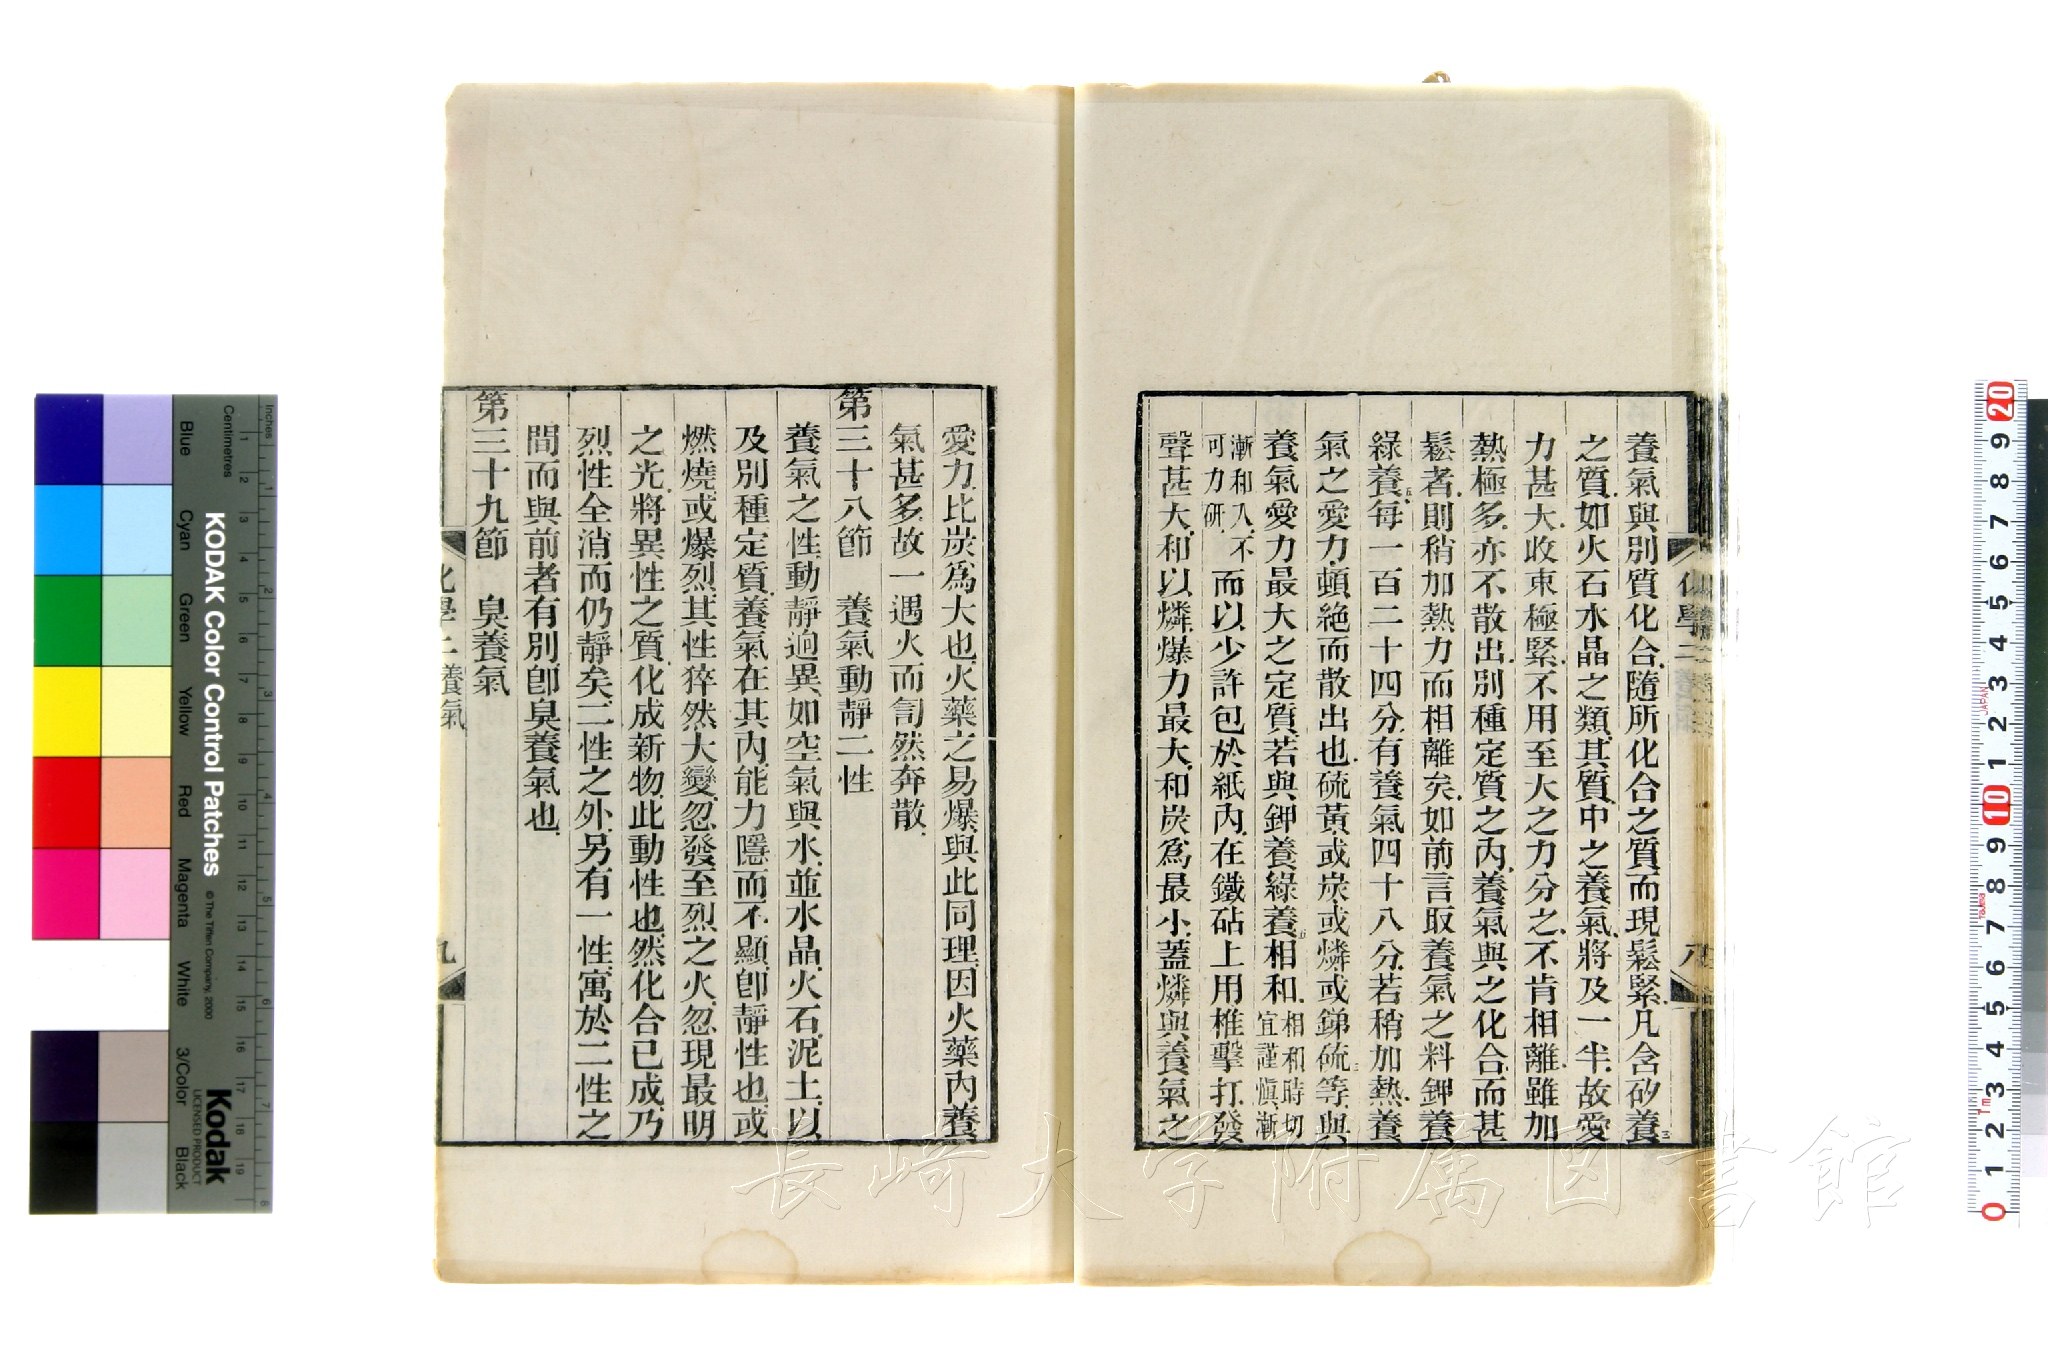 養氣與別質化合隨所化合之質而現鬆緊凡含矽養三
之質如火石水晶之類其質中之養氣將及一半故愛
力甚大收束極緊不用至大之力分之不肯相離雖加
熱極多亦不散出別種定質之內養氣與之化合而甚
鬆者則稍加熱力而相離矣如前言取養氣之料鉀養
綠養五每一百二十四分有養氣四十八分若稍加熱養
氣之愛力頓絶而散出也硫黃或炭或燐或銻硫三等與
養氣愛力最大之定質若與鉀養綠養五相和相和時切宜謹愼漸
漸和入不可力研而以少許包於紙內在鐵砧上用椎擊打發
聲甚大和以燐爆力最大和炭爲最小蓋燐與養氣之
化學二
八
愛力比炭爲大也火藥之易爆與此同理因火藥內養
氣甚多故一遇火而訇然奔散
第三十八節 養氣動靜二性
養氣之性動靜迥異如空氣與水並水晶火石泥土以
及別種定質養氣在其內能力隱而不顯卽靜性也或
燃燒或爆烈其性猝然大變忽發至烈之火忽現最明
之光將異性之質化成新物此動性也然化合已成乃
烈性全消而仍靜矣二性之外另有一性寓於二性之
間而與前者有別卽臭養氣也
第三十九節 臭養氣
化學二 養氣
九
長崎大学附属図書館
KODAK Color Control Patches
© The Tiffen Company, 2000
Kodak
LICENSED PRODUCT
Inches
Centimetres
Blue
Cyan
Green
Yellow
Red
Magenta
White
3/Color
Black
1 2 3 4 5 6 7 8
1 2 3 4 5 6 7 8 9 10 11 12 13 14 15 16 17 18 19
20 9 8 7 6 5 4 3 2 1 10 9 8 7 6 5 4 3 2 1 0
JAPAN